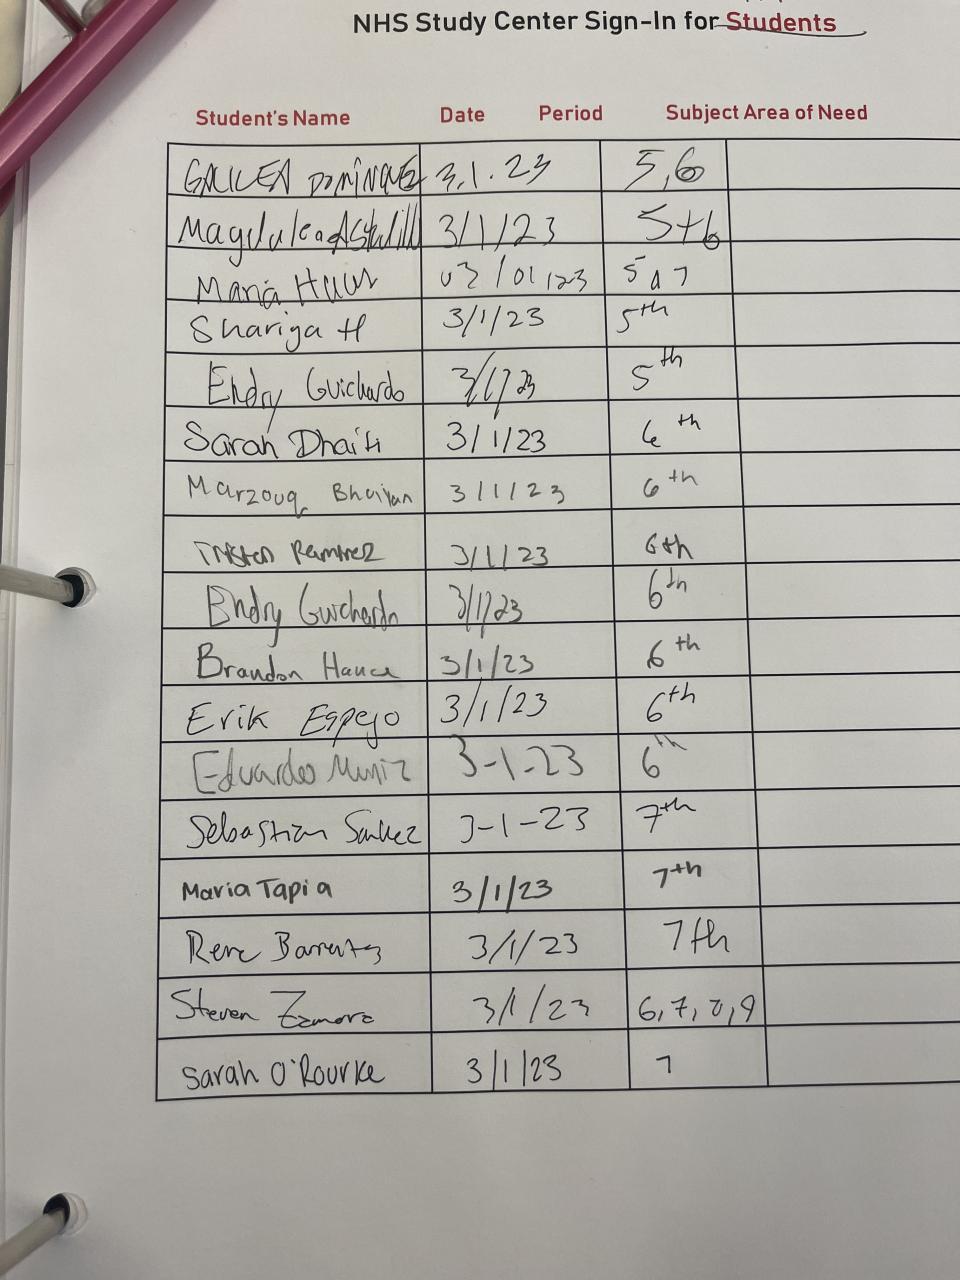 NHS Study Center Sign-In for Students
Student's Name Date Period Subject Area of Need
GALILEA 3.1.23 5,6
3/1/23 5+6
Maria 03/01/23 5 a 7
Shariga H 3/1/23 5th
Endry Guichardo 3/1/23 5th
Sarah Dhaiti 3/1/23 6th
Marzouq Bhuiyan 3/1/23 6th
Tristen Ramirez 3/1/23 6th
Endry Guichardo 3/1/23 6th
Brandon 3/1/23 6th
Erik Espejo 3/1/23 6th
Eduardo Muniz 3-1-23 6th
Sebastian 3-1-23 7th
Maria Tapia 3/1/23 7th
3/1/23 7th
Steven Zamora 3/1/23 6,7,8,9
Sarah O'Rourke 3/1/23 7